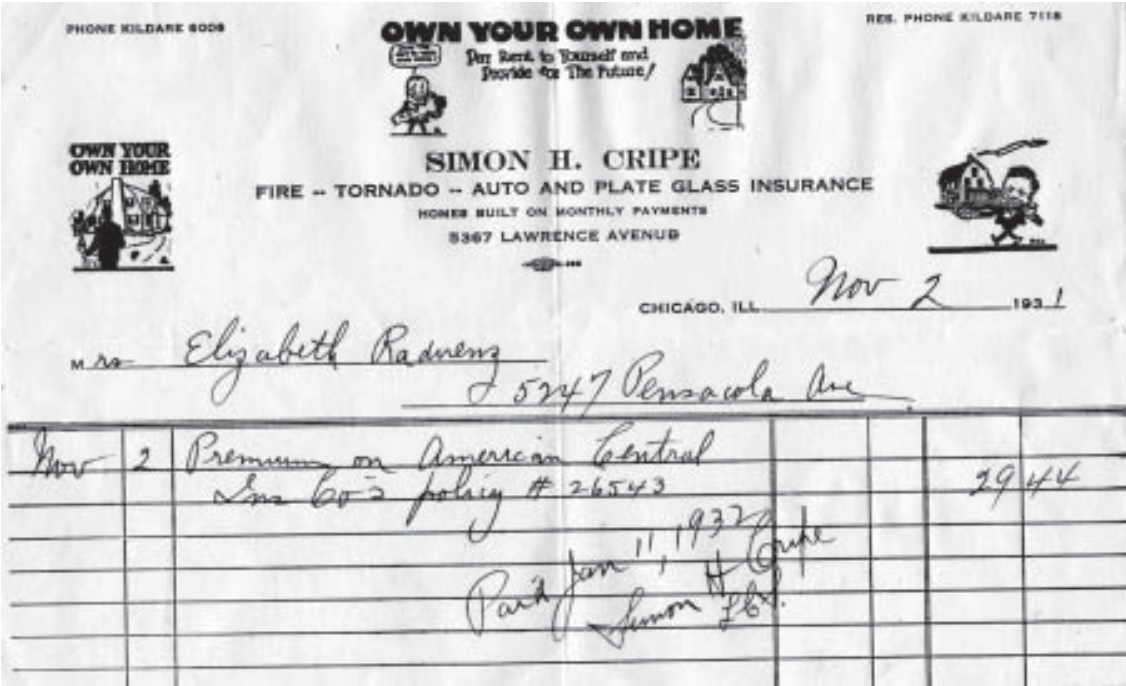 PHONE KILDARE 6006
OWN YOUR OWN HOME
RES. PHONE KILDARE 7118
Pay Rent to Yourself and
Provide for The Future!
OWN YOUR
OWN HOME
SIMON H. CRIPE
FIRE -- TORNADO -- AUTO AND PLATE GLASS INSURANCE
HOMES BUILT ON MONTHLY PAYMENTS
5367 LAWRENCE AVENUE
CHICAGO, ILL. Nov 2 1931
Mrs Elizabeth Raduenz
5247 Pensacola Ave
Nov 2 Premium on American Central
Ins Co's policy # 26543 29 44
Paid Jan 11, 1932
Simon H Cripe